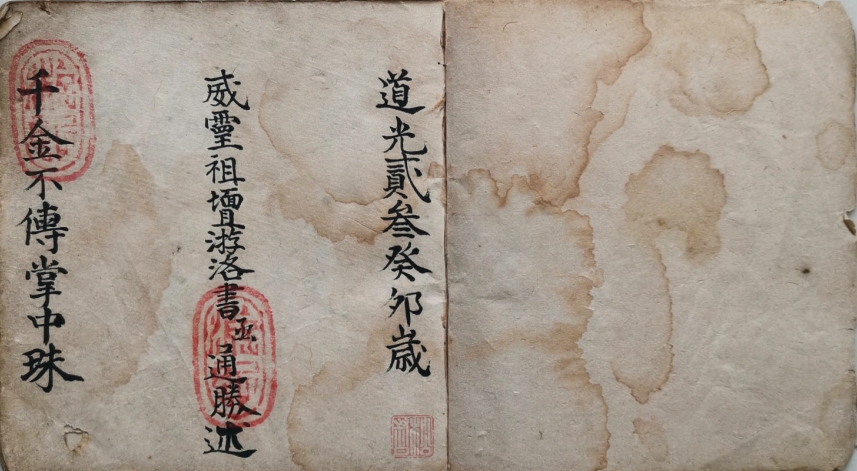 道光貳叁癸夘歲
威靈祖壇游洛書 通勝述
千金不傳掌中珠